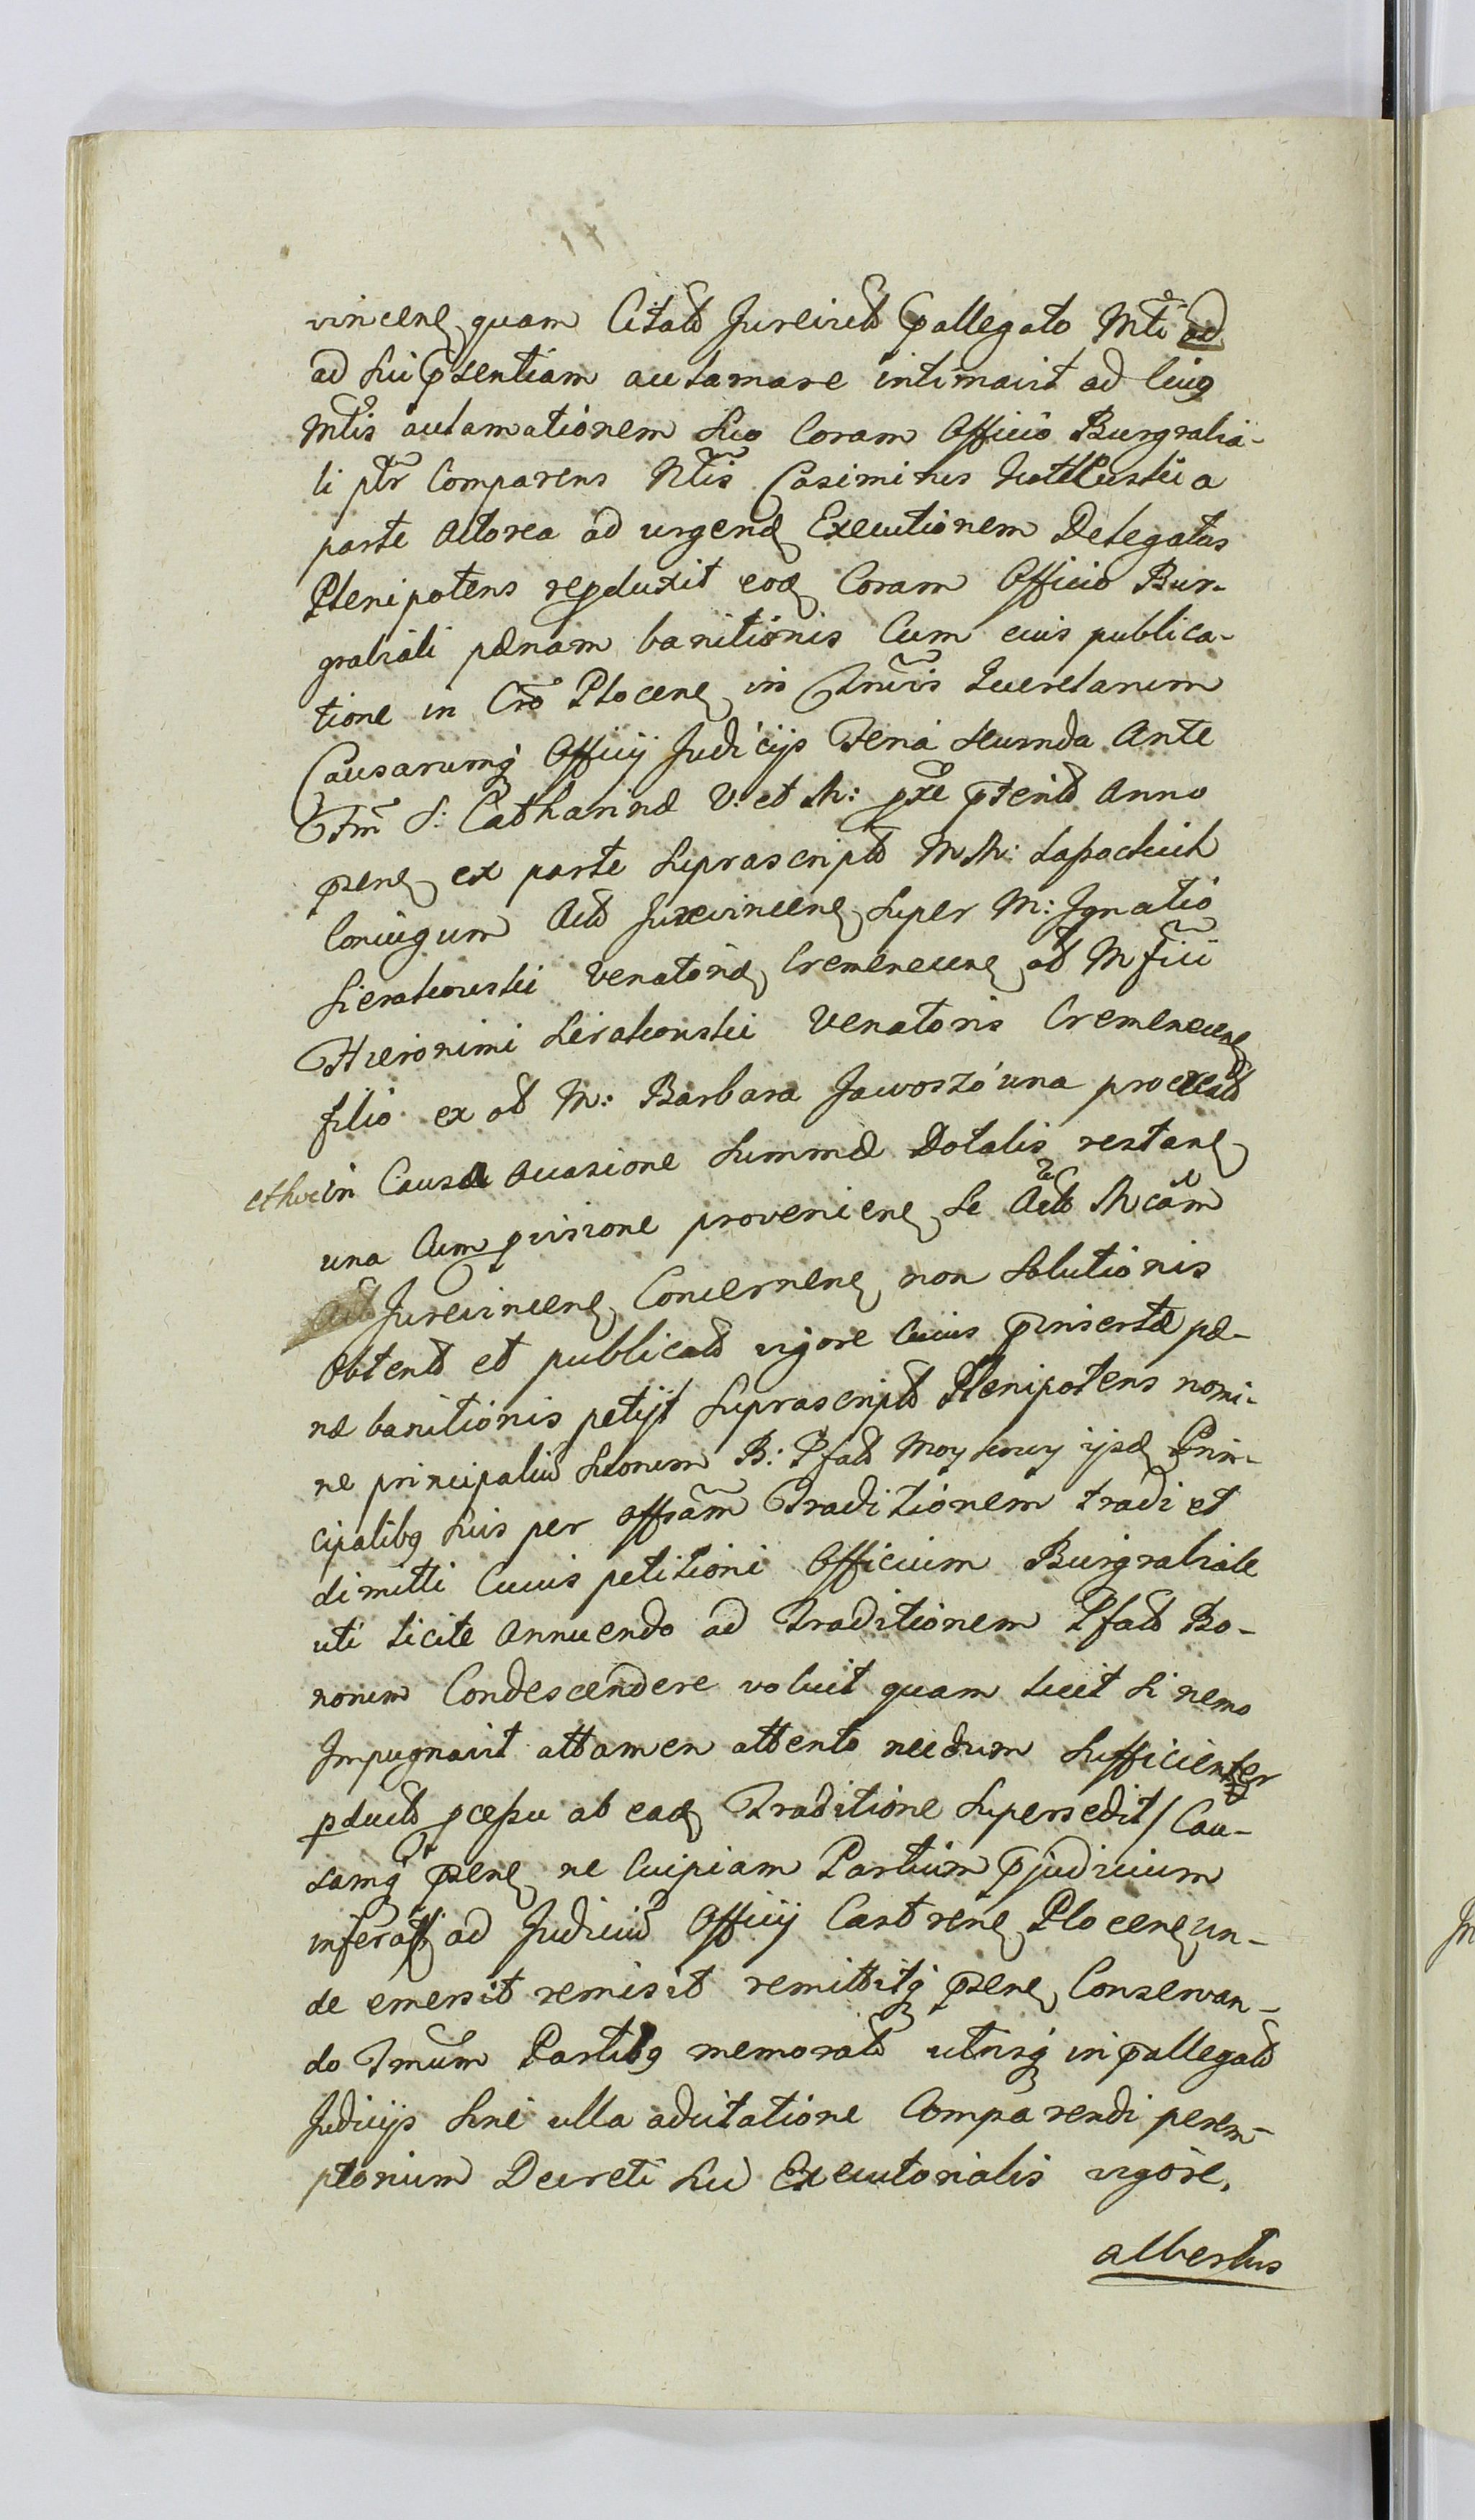 vincen quam Citat Jurevict pallegato Mti ad
ad sui psentiam aclamare intimavit ad cuig
Mtis aclamationem suo Coram Officio Burgrabia-
li ptr Comparens Ntis Casimirus a
parte Actorea ad urgend Executionem Delegatus
Plenipotens repduxit eod Coram Officio Bur-
grabiali pænam banitionis Cum eius publica-
tione in Cro Plocen in Trmis Querelarum
Causarumq Officij Judicijs Feria secunda Ante
Ftm S: Catharinæ V: et M: pxe pterito Anno
psen ex parte suprascript M M:
Coniugum Act Jurevincen super M: Ignatio
Sierakowski Venatorid Cremenecen ol Mfici
Hieronimi Sirakowski Venatoris Cremenecen
filio ex ol M: Barbara Jaworsżówna procreat
et hoc in Causa occasione summæ Dotalis restan
una Cum pvisione provenien se Act Mcam
Act Jurevincen Concernen non solutionis
obtent et publicat vigore cuius pinsertæ pæ-
næ banitionis petijt suprascript Plenipotens nomi-
ne principaliu suorum B: Pfat Moykowy ijsd Prin-
cipalibg suis per offsam Traditionem tradi et
dimitti Cuius petitioni Officium Burgrabiale
uti licite Annuendo ad Traditionem Pfat Bo-
norum Condescendere voluit quam licet si nemo
Impugnavit attamen attento necdum sufficienter
pduct pcessu ab ead Traditione supersedit / Cau-
samq psen ne Cuipiam Partium pjudicium
inferat ad Judiciu Officij Castren Plocen un-
de emersit remisit remittitq psen Conservan-
do Tmum Partibg memorat utrisq in pallegat
Judicijs sine ulla adcitatione Comparendi perem-
ptorium Decreti sui Executorialis vigore.
albertus